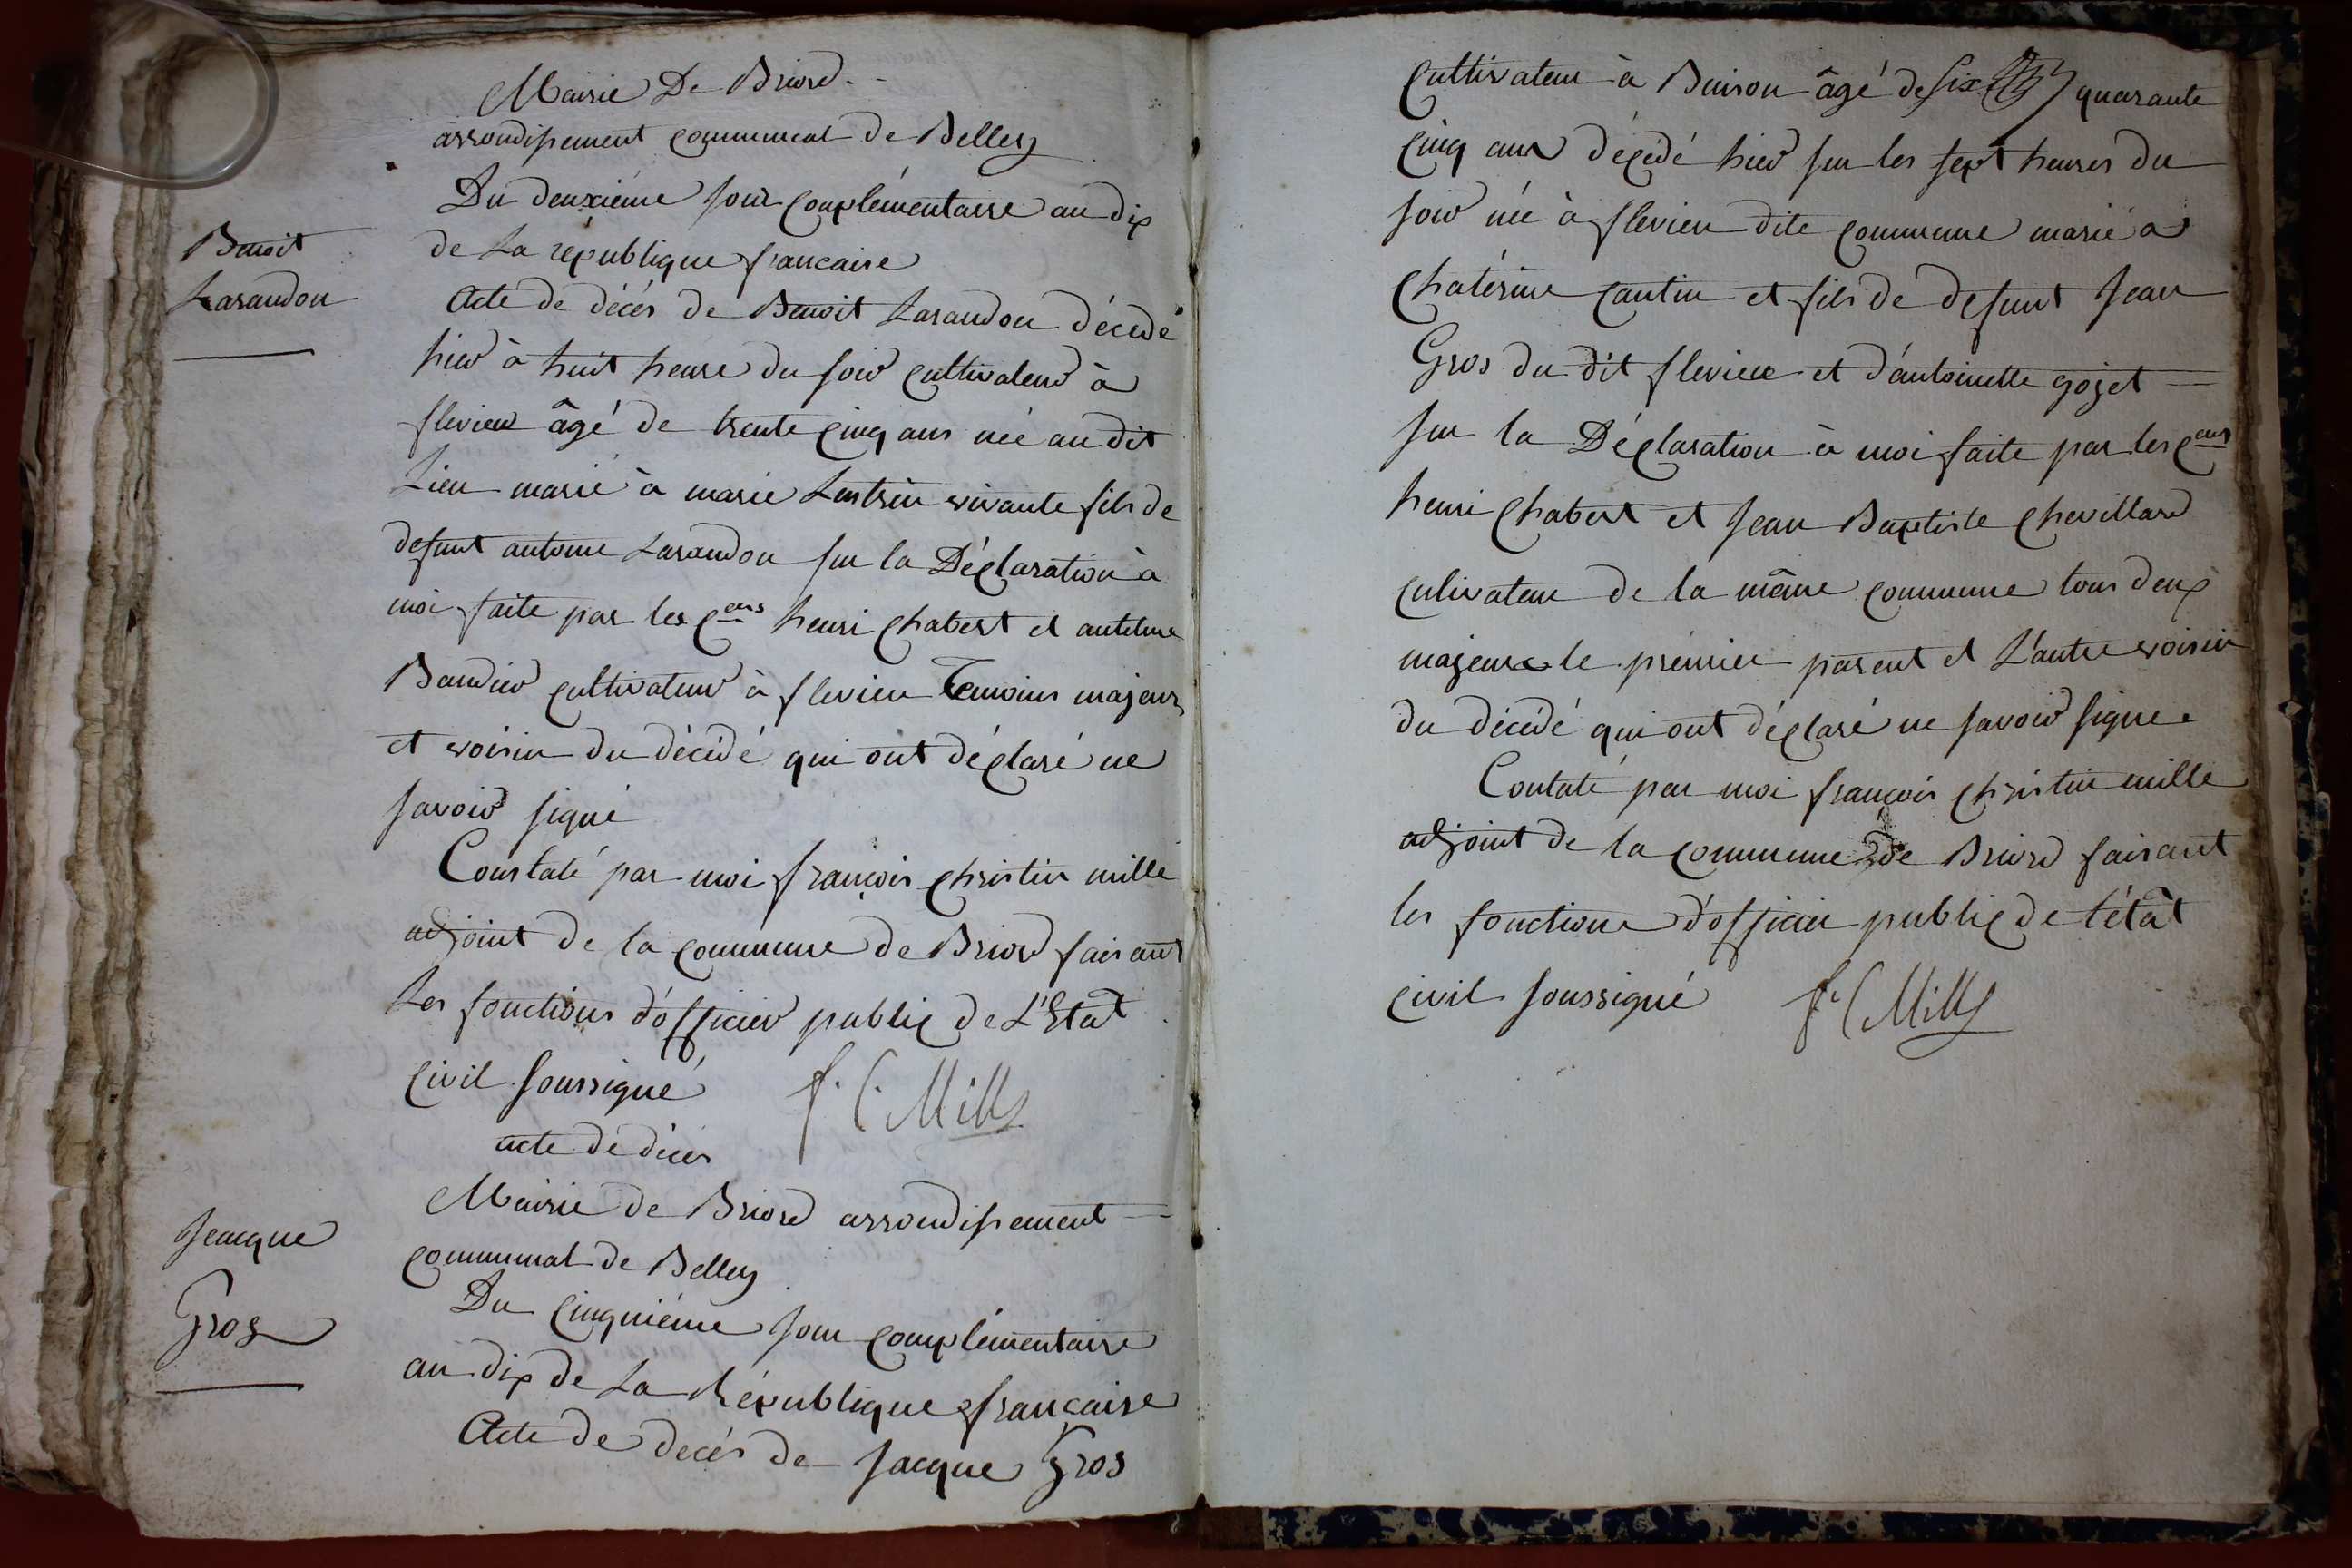 Mairie De Briord
arrondissement communal de Belley
Du deuxiéme jour complémentaire an dix
de La république francaise
Benoit
Larandon
Acte de décés de Benoit Larandon décedé
hier à huit heure du soir cultivateur à
flevieu âgé de trente cinq ans née au dit
Lieu marié à marie vivante fils de
defunt antoine Larandon sur la Déclaration à
moi faite par les cens henri chabert et antelme
Baudier cultivateur à flevieu Temoins majeurs
et voisin du décédé qui ont déclaré ne
savoir signé
Constaté par moi françois christin mille
adjoint de la commune de Briord faisant
Les fonctions d'officier public de L'Etat
civil soussigné f. C. Mille
acte de décés
Mairie de Briord arrondissement
communal de Belley
Jeacque
Gros
Du cinquiéme jour complémentaire
an dix de La République francaise
Acte de decés de Jacque Gros
cultivateur à âgé de six quarante
cinq ans décédé hier sur les sept heures du
soir née à flevieu dite commune marié a
chatérine cantin et fils de defunt Jean
Gros du dit flevieu et d'antoinette gojet
sur la Déclaration à moi faite par les cens
henri chabert et Jean Baptiste chevillard
culivateur de la même commune tous deux
majeurs le prémier parent et L'autre voisin
du décédé qui ont déclaré ne savoir signe
Contaté par moi françois christin mille
adjoint de la commune de Briord faisant
les fonctions d'officier public de l'étât
civil soussigné f. C Mille